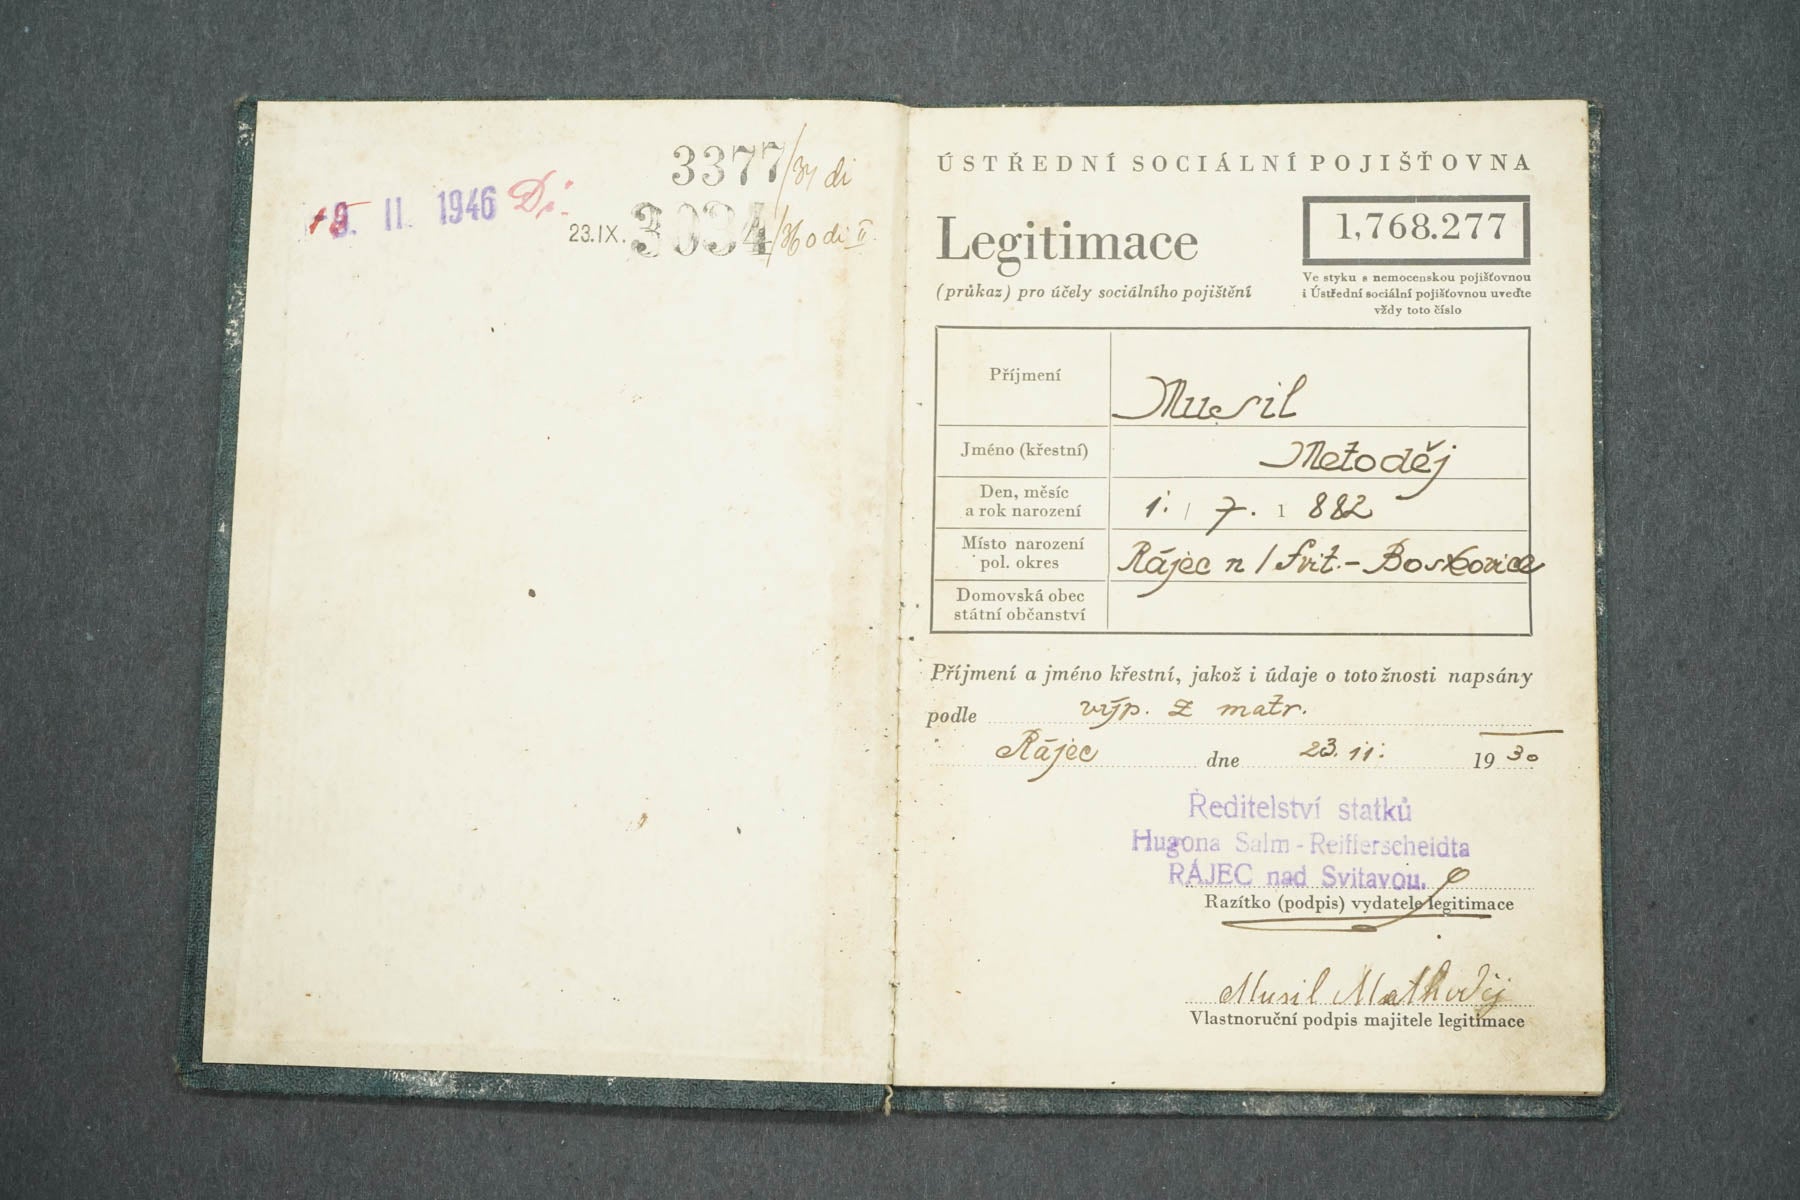 3377/34 di
9. II. 1946 Di.
23.IX. 3034/36 o di II.
ÚSTŘEDNÍ SOCIÁLNÍ POJIŠŤOVNA
Legitimace
1,768.277
(průkaz) pro účely sociálního pojištění
Ve styku s nemocenskou pojišťovnou
i Ústřední sociální pojišťovnou uveďte
vždy toto číslo
Příjmení
Musil
Jméno (křestní)
Metoděj
Den, měsíc
a rok narození
1. / 7. 1 882
Místo narození
pol. okres
Rájec n/Svit. - Boskovice
Domovská obec
státní občanství
Příjmení a jméno křestní, jakož i údaje o totožnosti napsány
podle výp. z matr.
Rájec dne 23. 11. 1930
Ředitelství statků
Hugona Salm-Reifferscheidta
RÁJEC nad Svitavou.
Razítko (podpis) vydatele legitimace
Musil Mathoděj
Vlastnoruční podpis majitele legitimace